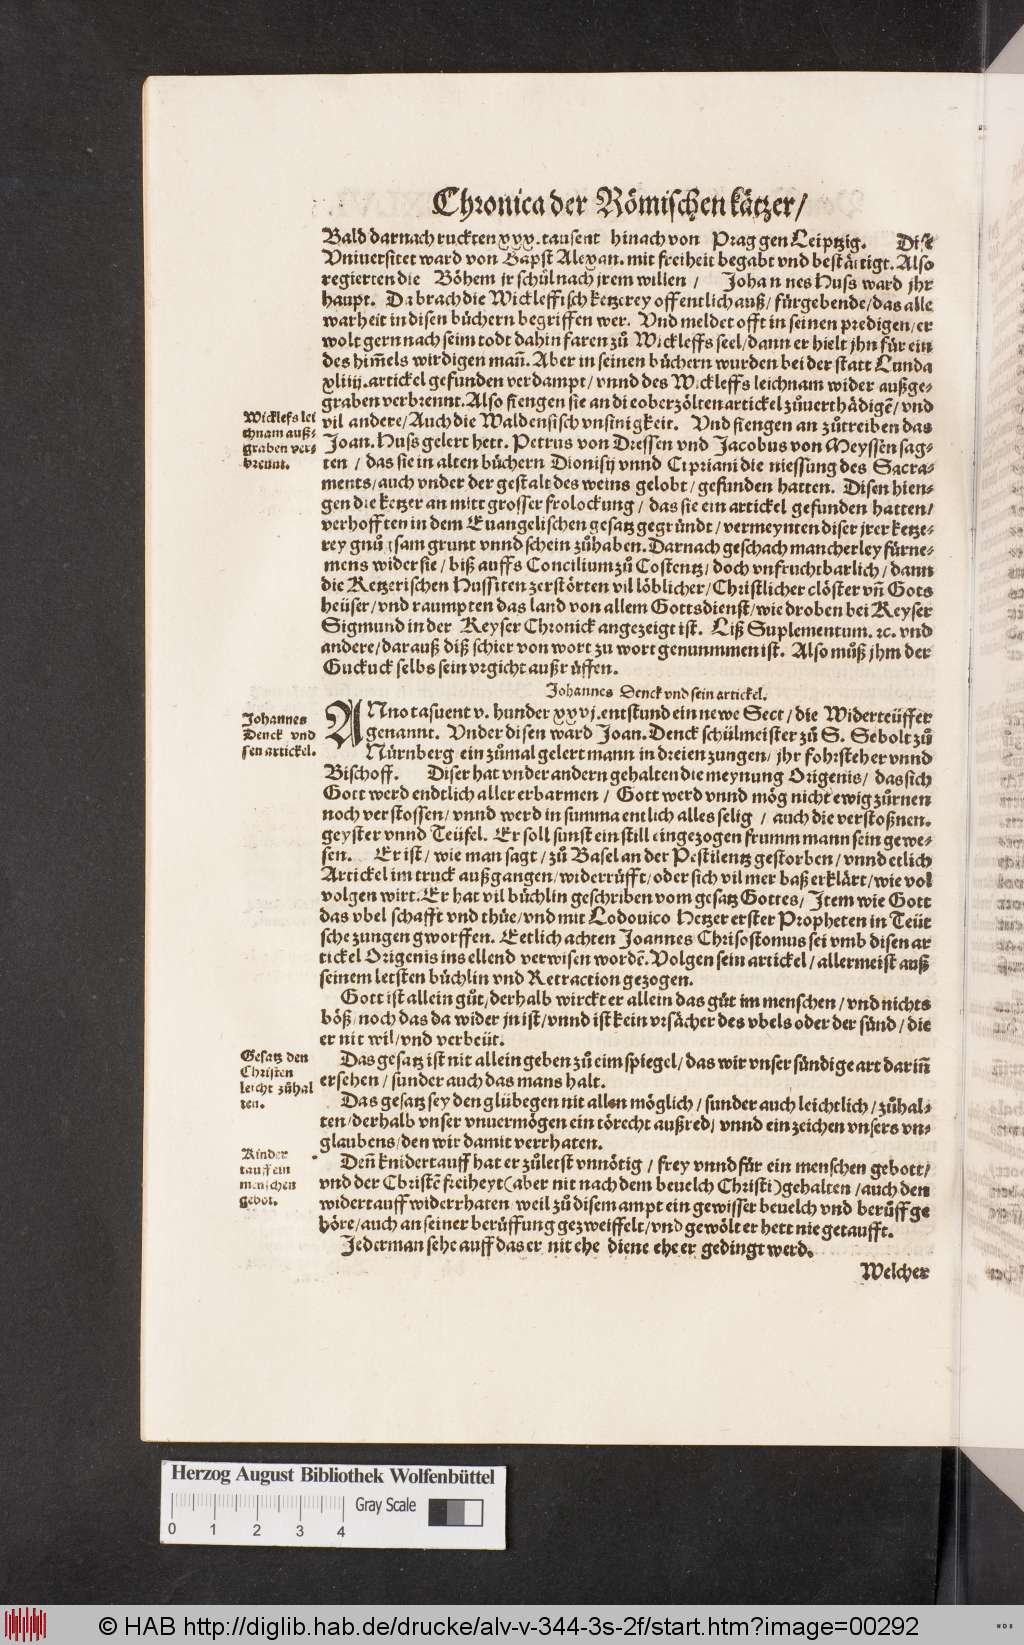 Chronica der Römischen kätzer/
Bald darnach ruckten xxx.tausent hinach von Prag gen Leiptzig. Dise
Vniuersitet ward von Bapst Alexan. mit freiheit begabt vnd bestätigt. Also
regierten die Böhem jr schůl nach jrem willen / Johannes Huss ward jhr
haupt. Da brach die Wickleffisch ketzerey offentlich auß/ fürgebende/das alle
warheit in disen bůchern begriffen wer. Vnd meldet offt in seinen predigen/er
wolt gern nach seim todt dahin faren zů Wickleffs seel/dann er hielt jhn für ein
des him̃els wirdigen mañ. Aber in seinen bůchern wurden bei der statt Lunda
xliiij.artickel gefunden verdampt/vnnd des Wickleffs leichnam wider außge-
graben verbrennt. Also fiengen sie an die oberzölten artickel zůuerthädigẽ/vnd
Wicklefs lei
chnam auß-
graben ver-
brennt.
vil andere/Auch die Waldensisch vnsinigkeit. Vnd fiengen an zůtreiben das
Joan. Huss gelert hett. Petrus von Dressen vnd Jacobus von Meyssen sag-
ten / das sie in alten bůchern Dionisij vnnd Cipriani die niessung des Sacra-
ments/auch vnder der gestalt des weins gelobt/gefunden hatten. Disen hien-
gen die ketzer an mitt grosser frolockung / das sie ein artickel gefunden hatten/
verhofften in dem Euangelischen gesatz gegründt/vermeynten diser jrer ketze-
rey gnůgsam grunt vnnd schein zůhaben. Darnach geschach mancherley fürne-
mens wider sie/ biß auffs Concilium zů Costentz/doch vnfruchtbarlich/dann
die Ketzerischen Hussiten zerstörten vil löblicher/Christlicher clöster vñ Gots
heüser/vnd raumpten das land von allem Gottsdienst/wie droben bei Keyser
Sigmund in der Keyser Chronick angezeigt ist. Liß Suplementum. ꝛc. vnd
andere/darauß diß schier von wort zu wort genummen ist. Also můß jhm der
Guckuck selbs sein vrgicht außrůffen.
Johannes Denck vnd sein artickel.
Johannes
Denck vnd
sen artickel.
ANno tasuent v. hunder xxvj.entstund ein newe Sect/die Widerteüffer
genannt. Vnder disen ward Joan. Denck schůlmeister zů S. Sebolt zů
Nürnberg ein zůmal gelert mann in dreien zungen/ jhr fohrsteher vnnd
Bischoff. Diser hat vnder andern gehalten die meynung Origenis/ das sich
Gott werd endtlich aller erbarmen / Gott werd vnnd mög nicht ewig zürnen
noch verstossen/vnnd werd in summa entlich alles selig / auch die verstoßnen.
geyster vnnd Teüfel. Er soll sunst ein still eingezogen frumm mann sein gewe-
sen. Er ist/ wie man sagt/zů Basel an der Pestilentz gestorben/vnnd etlich
Artickel im truck außgangen/widerrůfft/oder sich vil mer baß erklärt/wie vol
volgen wirt. Er hat vil büchlin geschriben vom gesatz Gottes/ Item wie Gott
das vbel schafft vnd thüe/vnd mit Lodouico Hetzer erster Propheten in Teüt
sche zungen gworffen. Eetlich achten Joannes Chrisostomus sei vmb disen ar
tickel Origenis ins ellend verwisen wordẽ. Volgen sein artickel/allermeist auß
seinem letsten büchlin vnd Retraction gezogen.
Gott ist allein gůt/derhalb wirckt er allein das gůt im menschen/vnd nichts
böß/noch das da wider jn ist/vnnd ist kein vrsächer des vbels oder der sünd/die
er nit wil/vnd verbeüt.
Gesatz den
Christen
leicht zůhal
ten.
Das gesatz ist nit allein geben zů eim spiegel/das wir vnser sündige art dariñ
ersehen/sunder auch das mans halt.
Das gesatz sey den glübegen nit allen möglich/sunder auch leichtlich/zůhal-
ten/derhalb vnser vnuermögen ein törecht außred/ vnnd ein zeichen vnsers vn-
glaubens/den wir damit verrhaten.
Kinder
tauff ein
menschen
gebot.
Deñ knidertauff hat er zůletst vnnötig / frey vnnd für ein menschen gebott/
vnd der Christẽ freiheyt(aber nit nach dem beuelch Christi)gehalten/auch den
widertauff widerrhaten/weil zů disem ampt ein gewisser beuelch vnd berůff ge
höre/auch an seiner berůffung gezweiffelt/vnd gewölt er hett nie getaufft.
Jederman sehe auff das er nit ehe diene ehe er gedingt werd.
Welcher
Herzog August Bibliothek Wolfenbüttel
Gray Scale
0 1 2 3 4
© HAB http://diglib.hab.de/drucke/alv-v-344-3s-2f/start.htm?image=00292